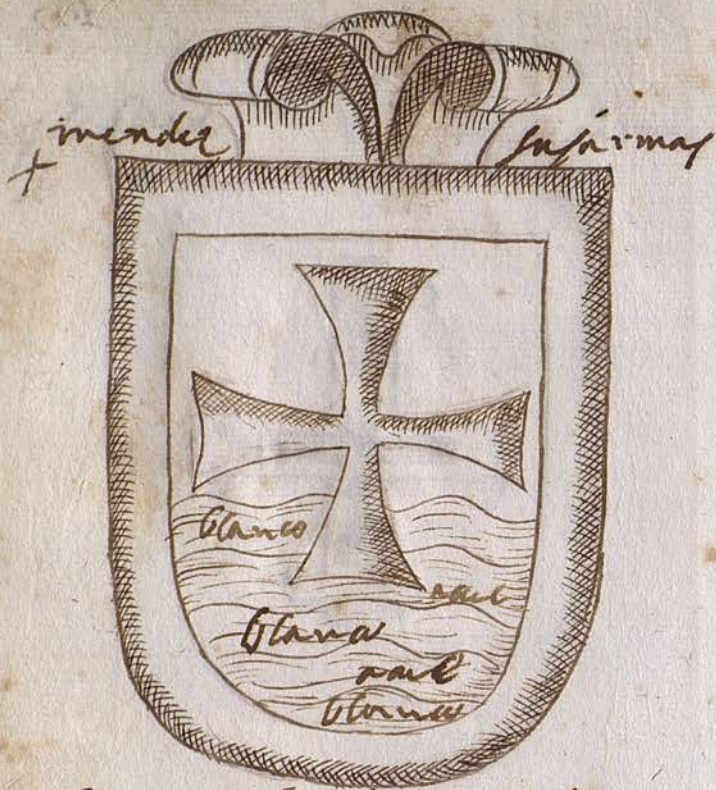 mendez susármas
blanco
azul
blanco
azul
blanco